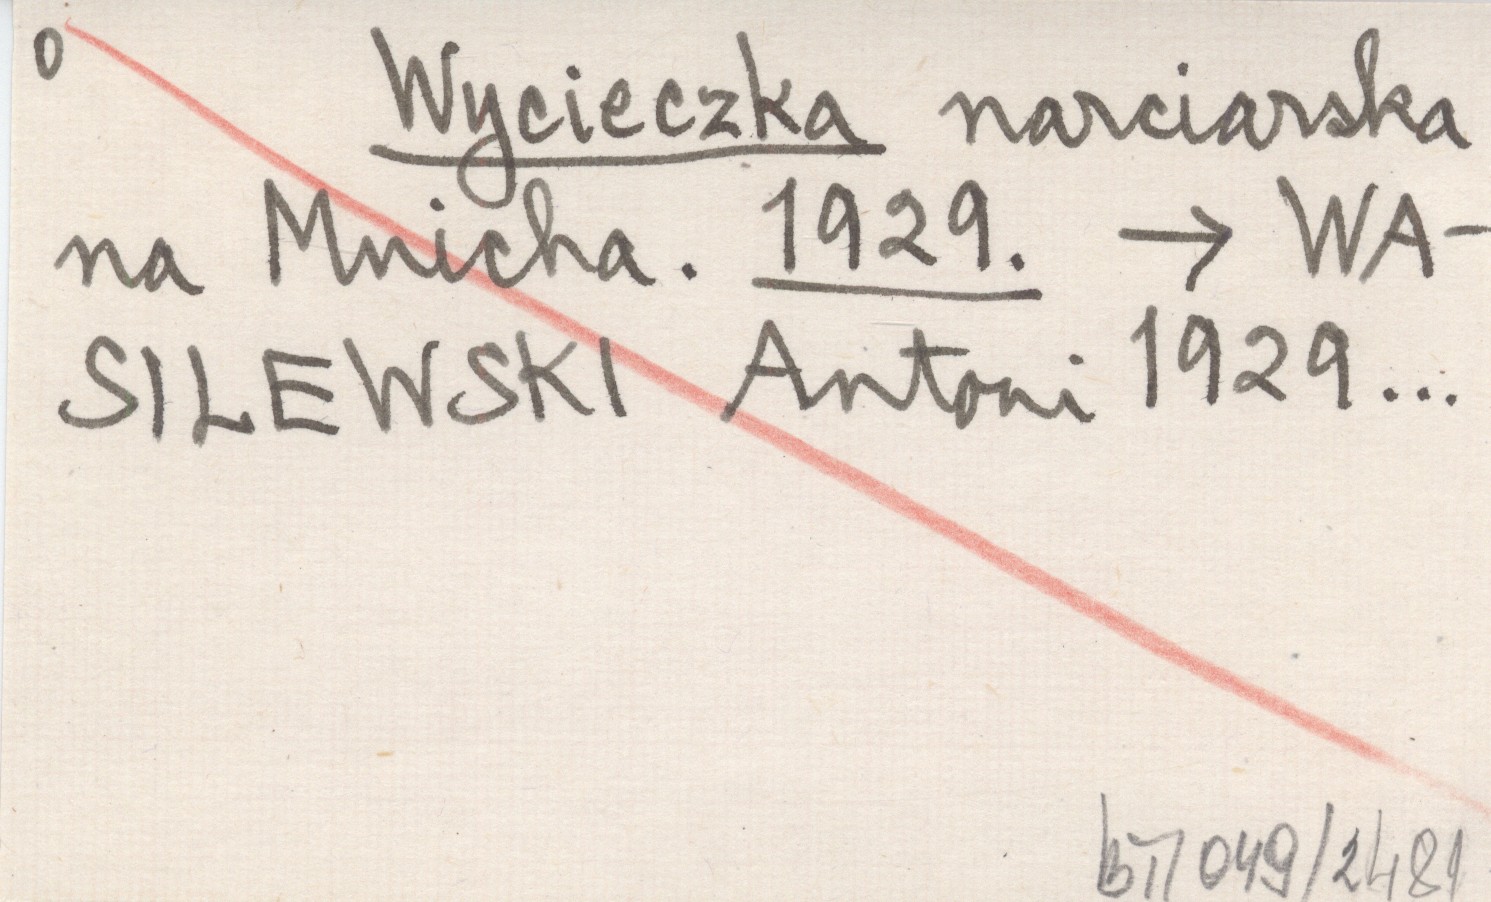 0 Wycieczka narciarska
na Mnicha. 1929. → WA-
SILEWSKI Antoni 1929...
BT/049/2481